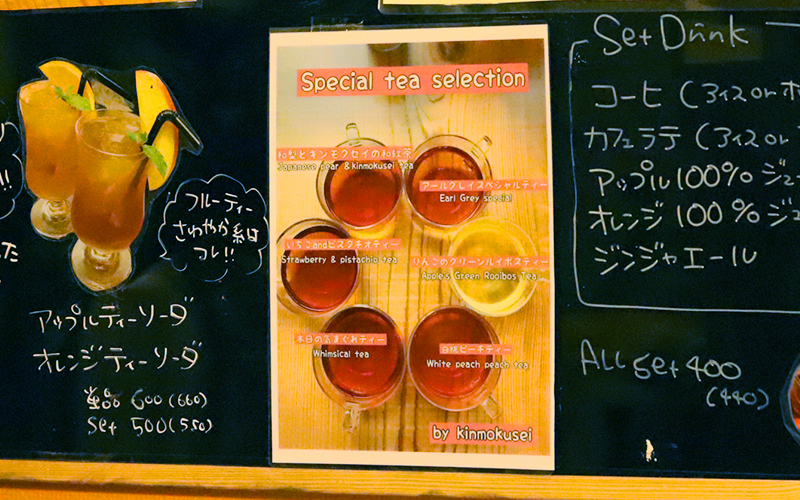 フルーティー
さわやか系は
コレ!!
アップルティーソーダ
オレンジティーソーダ
単品 600(660)
Set 500(550)
Special tea selection
和梨とキンモクセイの和紅茶
Japanese pear & kinmokusei tea
アールグレイスペシャルティー
Earl Grey special
いちごandピスタチオティー
Strawberry & pistachio tea
りんごのグリーンルイボスティー
Apple's Green Rooibos Tea
本日の気まぐれティー
Whimsical tea
白桃ピーチティー
White peach peach tea
by kinmokusei
Set Drink
コーヒ (アイス or ホ
カフェラテ (アイス or
アップル 100% ジュ
オレンジ 100% ジュ
ジンジャエール
ALL Set 400
(440)